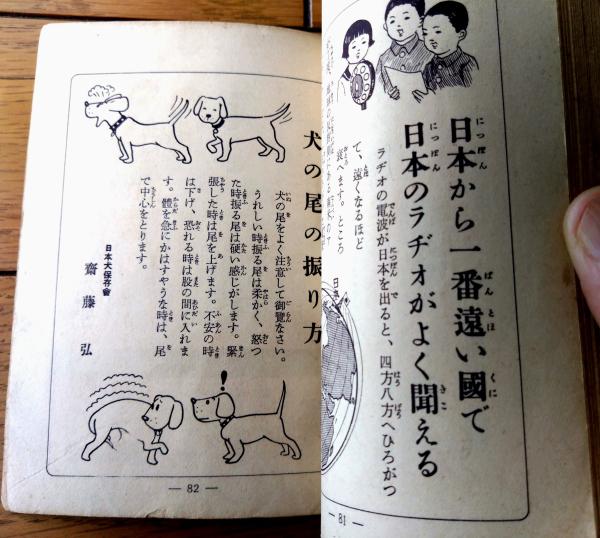 日本から一番遠い國で
日本のラヂオがよく聞える
ラヂオの電波が日本を出ると、四方八方へひろがつ
て、遠くなるほど
衰へます。ところ
— 81 —
犬の尾の振り方
犬の尾をよく注意して御覽なさい。
うれしい時振る尾は柔かく、怒つ
た時振る尾は硬い感じがします。緊
張した時は尾を上げます。不安の時
は下げ、恐れる時は股の間に入れま
す。體を急にかはすやうな時は、尾
で中心をとります。
日本犬保存會
齋藤弘
!
— 82 —